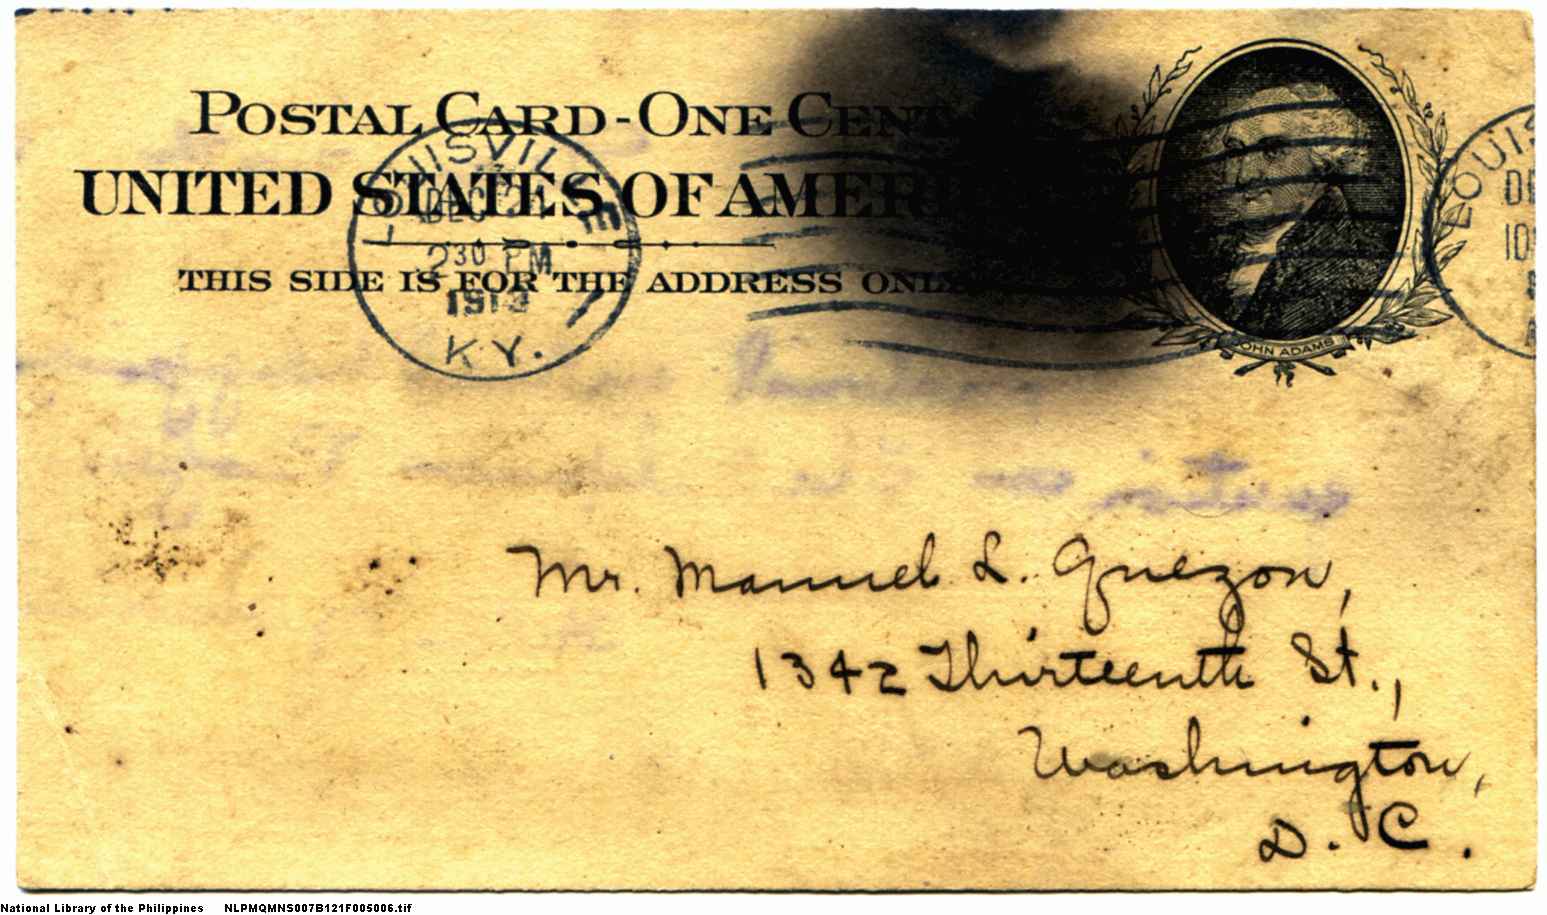 POSTAL CARD - ONE CENT
UNITED STATES OF AMERI
THIS SIDE IS FOR THE ADDRESS ONLY
LOUISVILLE
DEC
2 30 PM
1913
KY.
JOHN ADAMS
LOUIS
DE
10
Mr. Manuel L. Quezon,
1342 Thirteenth St.,
Washington,
D. C.
National Library of the Philippines NLPMQMNS007B121F005006.tif